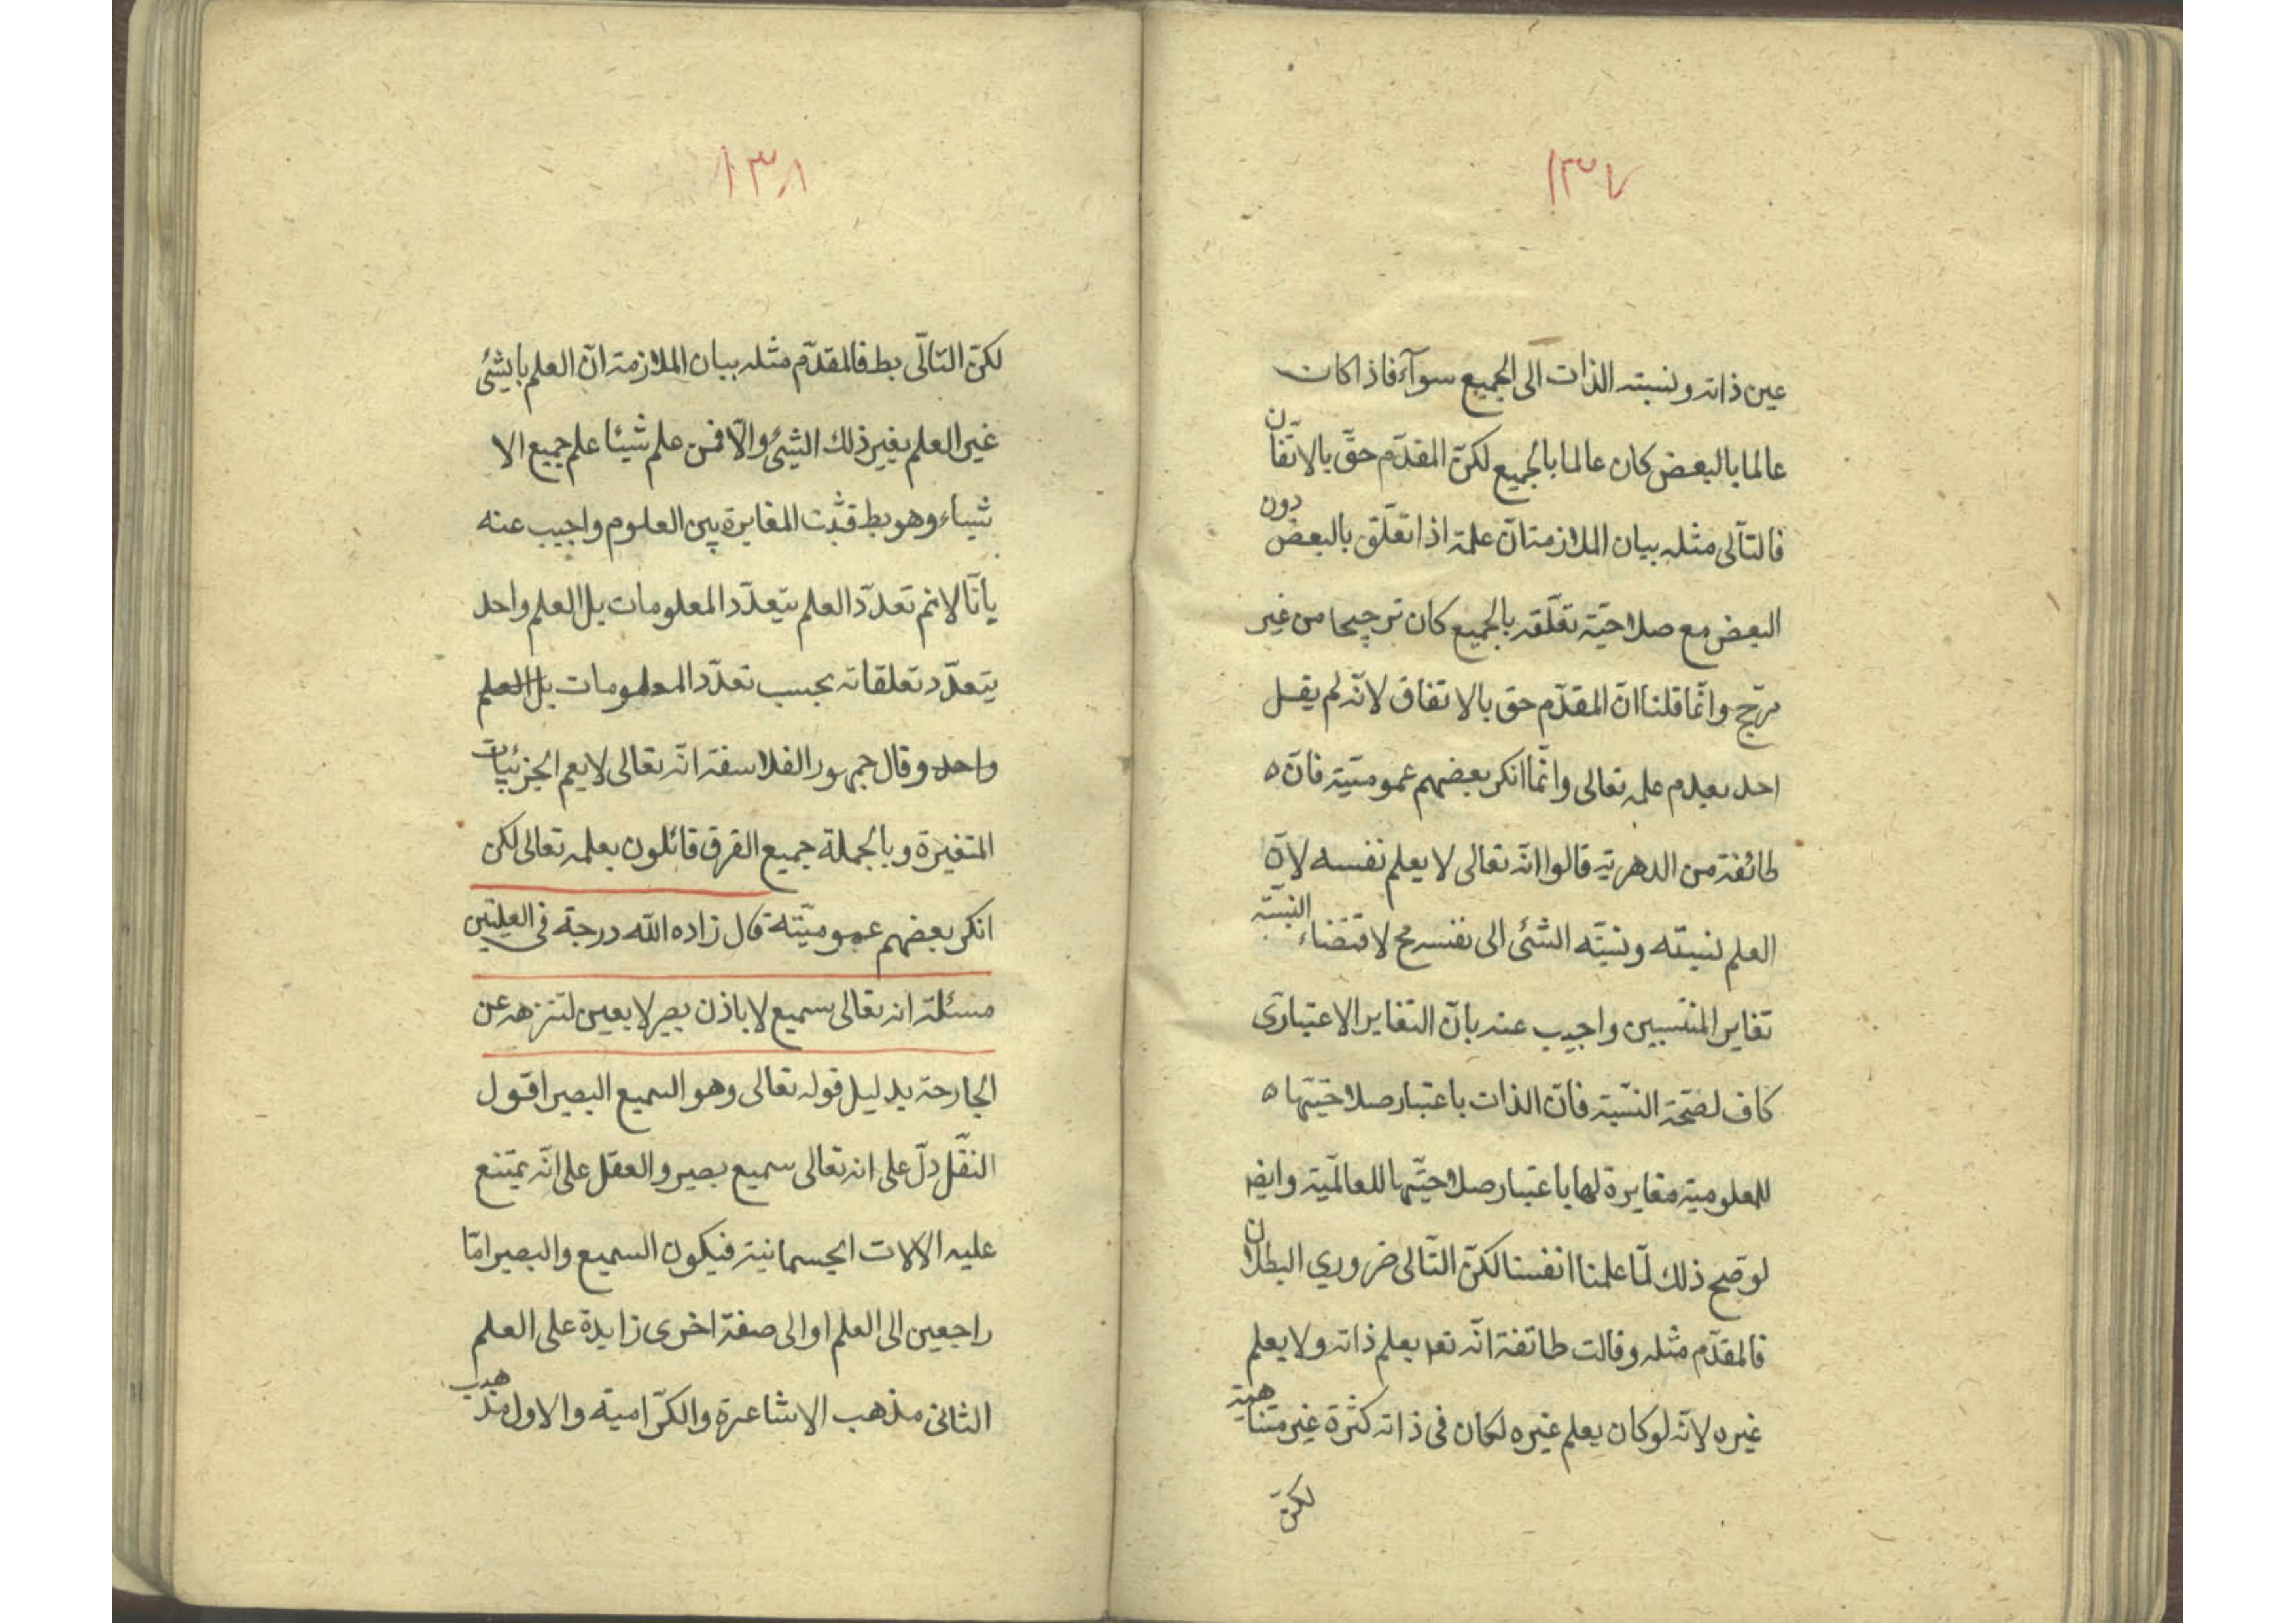 ١٣٧
عين ذاته ونسبته الذات الى الجميع سوآء فاذا كانت
عالما بالبعض كان عالما بالجميع لكنّ المقدّم حقّ بالاتّفان
فالتآلى مثله بيان الملازمة انّ علمه اذا تعلّق بالبعض دون
البعض مع صلاحيّة تعلّقه بالجميع كان ترجيحا من غير
مرجّح وانّما قلنا انّ المقدّم حق بالاتفاق لانّه لم يقل
احد بعدم علمه تعالى وانّما انكر بعضهم عموميّته فانّ ه
طائفة من الدهرية قالوا انّه تعالى لا يعلم نفسه لانّ
العلم نسبته ونسبّه الشئى الى نفسه مح لاقتضاء النسبّة
تغاير المنتسبين واجيب عنه بانّ التغاير الاعتبارى
كاف لصّحة النسّبة فانّ الذات باعتبار صلاحيّتها ه
للمعلومية مغايرة لها باعتبار صلاحيّتها للعالميّة وايض
لو صّح ذلك لمّا علمنا انفسنا لكنّ التّالى ضروري البطلان
فالمقدّم مثله وقالت طائفة انّه تعم يعلم ذاته ولا يعلم
غيره لانّه لو كان يعلم غيره لكان فى ذاته كثرة غير متناهية
لكنّ
١٣٨
لكنّ التّالّى بط فالمقدّم مثله بيان الملازمة انّ العلم بايشئ
غير العلم بغير ذلك الشيئ والّا فمن علم شيئا علم جميع الا
شياء وهو بط فثبت المغايرة بين العلوم واجيب عنه
بأنّا لا نم تعدّد العلم بتعدّد المعلومات بل العلم واحد
يتعدّد تعلقاته بحسب تعدّد المعلومات بل العلم
واحد وقال جمهور الفلاسفة انّه تعالى لا يعم الجزئيات
المتغيرة وبالجملة جميع الفرق قائلون بعلمه تعالى لكن
انكر بعضهم عموميّته قال زاده الله درجة فى العليّين
مسئلة انه تعالى سميع لا باذن بصير لا بعين لتنزهه عن
الجارحة بدليل قوله تعالى وهو السميع البصير اقول
النقّل دلّ على انه تعالى سميع بصير والعقل على انّه يمتنع
عليه الالات الجسمانية فيكون السميع والبصير امّا
راجعين الى العلم او الى صفة اخرى زايدة على العلم
الثانى مذهب الاشاعرة والكرّامية والاول مذهب